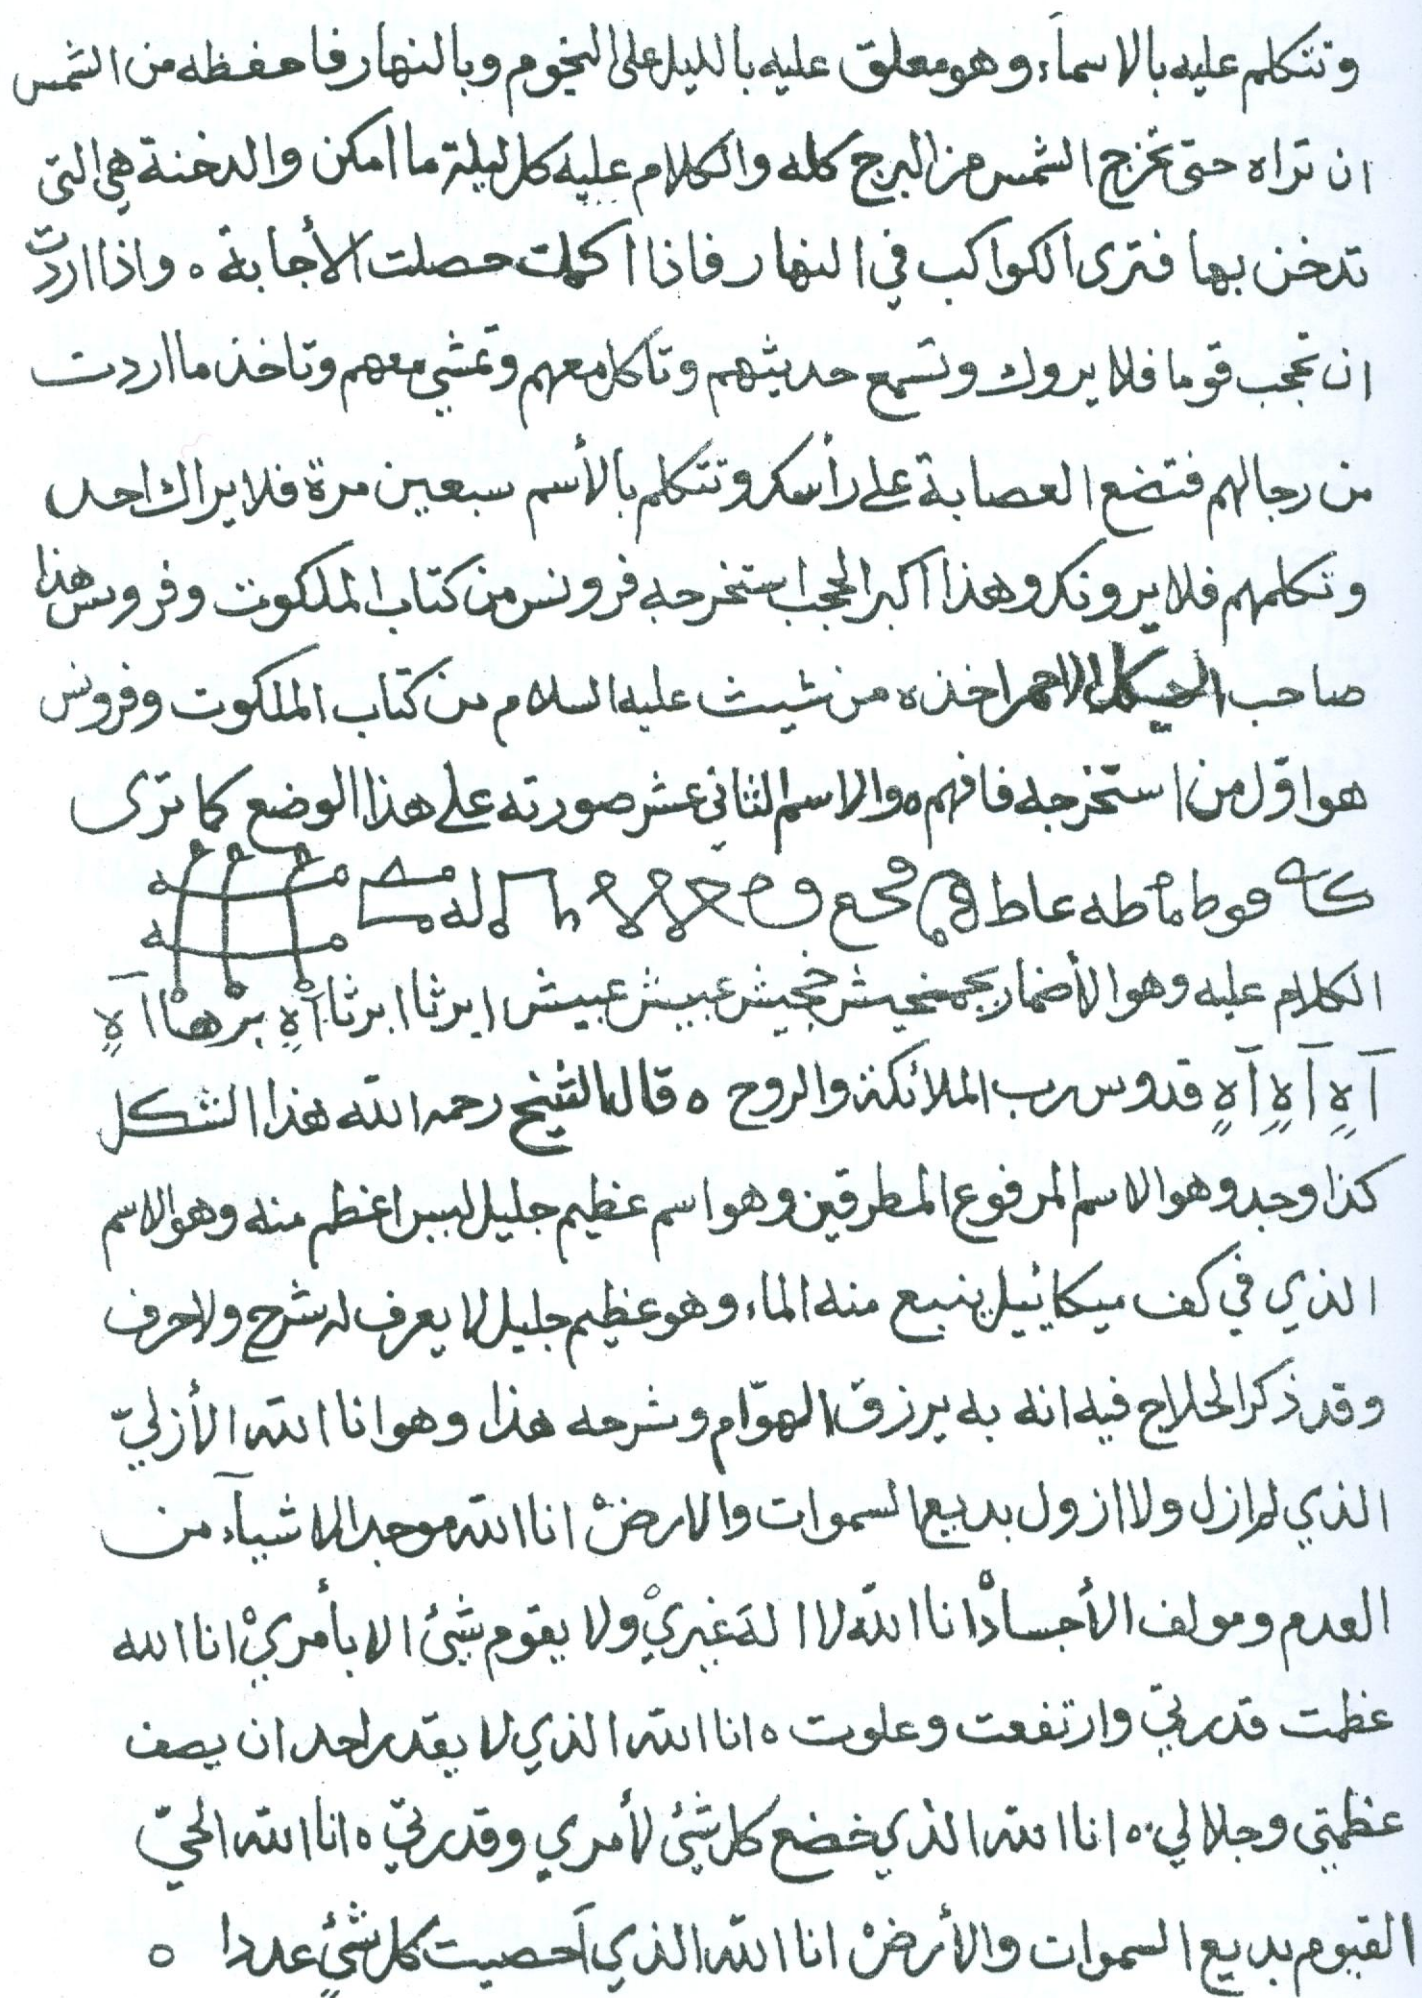 وتتكلم عليه بالاسمآء وهو معلق عليه بالليل على النجوم وبالنهار فاحفظه من الشمس
ان تراه حتى تخرج الشمس من البرج كله والكلام عليه كل ليلة ما امكن والدخنة هي التي
تدخن بها فترى الكواكب في النهار فاذا اكملت حصلت الأجابة ه واذا اردت
ان تحجب قوما فلا يروك وتسمع حديثهم وتاكل معهم وتمشي معهم وتاخذ ما اردت
من رجالهم فتضع العصابة على رأسك وتتكلم بالأسم سبعين مرة فلا يراك احد
وتكلمهم فلا يرونك وهذا اكبر الحجب استخرجه فرونس من كتاب الملكوت وفرونس هذا
صاحب الهيكل الاحمر اخذه من شيث عليه السلام من كتاب الملكوت وفرونس
هو اوّل من استخرجه فافهم ه والاسم الثاني عشر صورته على هذا الوضع كما ترى
طه عاط
الكلام عليه وهو الأضمار عبيش عبيش ايرثا ابرثا آهٍ آهٍ
آهٍ آهٍ آهٍ قدوس رب الملائكة والروح ه قال الشيخ رحمه الله هذا الشكل
كذا وجد وهو الاسم المرفوع المطرقين وهو اسم عظيم جليل ليس اعظم منه وهو الاسم
الذي في كف ميكائيل ينبع منه الماء وهو عظيم جليل لا يعرف له شرح ولا حرف
وقد ذكر الحلاج فيه انه به يرزق الهوّام وشرحه هذا وهو انا الله الأزليّ
الذي لم ازل ولا ازول بديع السموات والارض انا الله موجد الاشيآء من
العدم ومولف الأجساد انا الله لا اله غيري ولا يقوم شئ الا بأمري انا الله
عظمت قدرتي وارتفعت وعلوت ه انا الله الذي لا يقدر احد ان يصف
عظمتي وجلالي ه انا الله الذي خضع كل شئ لأمري وقدرتي ه انا الله الحيّ
القيوم بديع السموات والأرض انا الله الذي احصيت كل شئٍ عددا ه